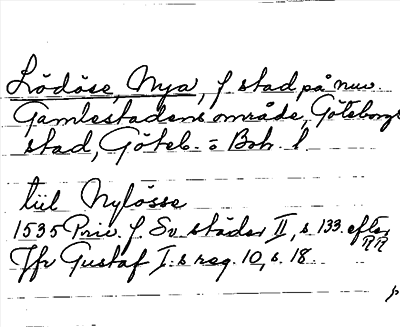 Lödöse, Nya, f stad på nuv.
Gamlestadens område, Göteborgs
stad, Göteb. o Boh. l.
till Nylösse
1535 Priv. f. Sv städer II, s. 133. efter
RR
Jfr Gustaf I.s reg. 10, s. 18.